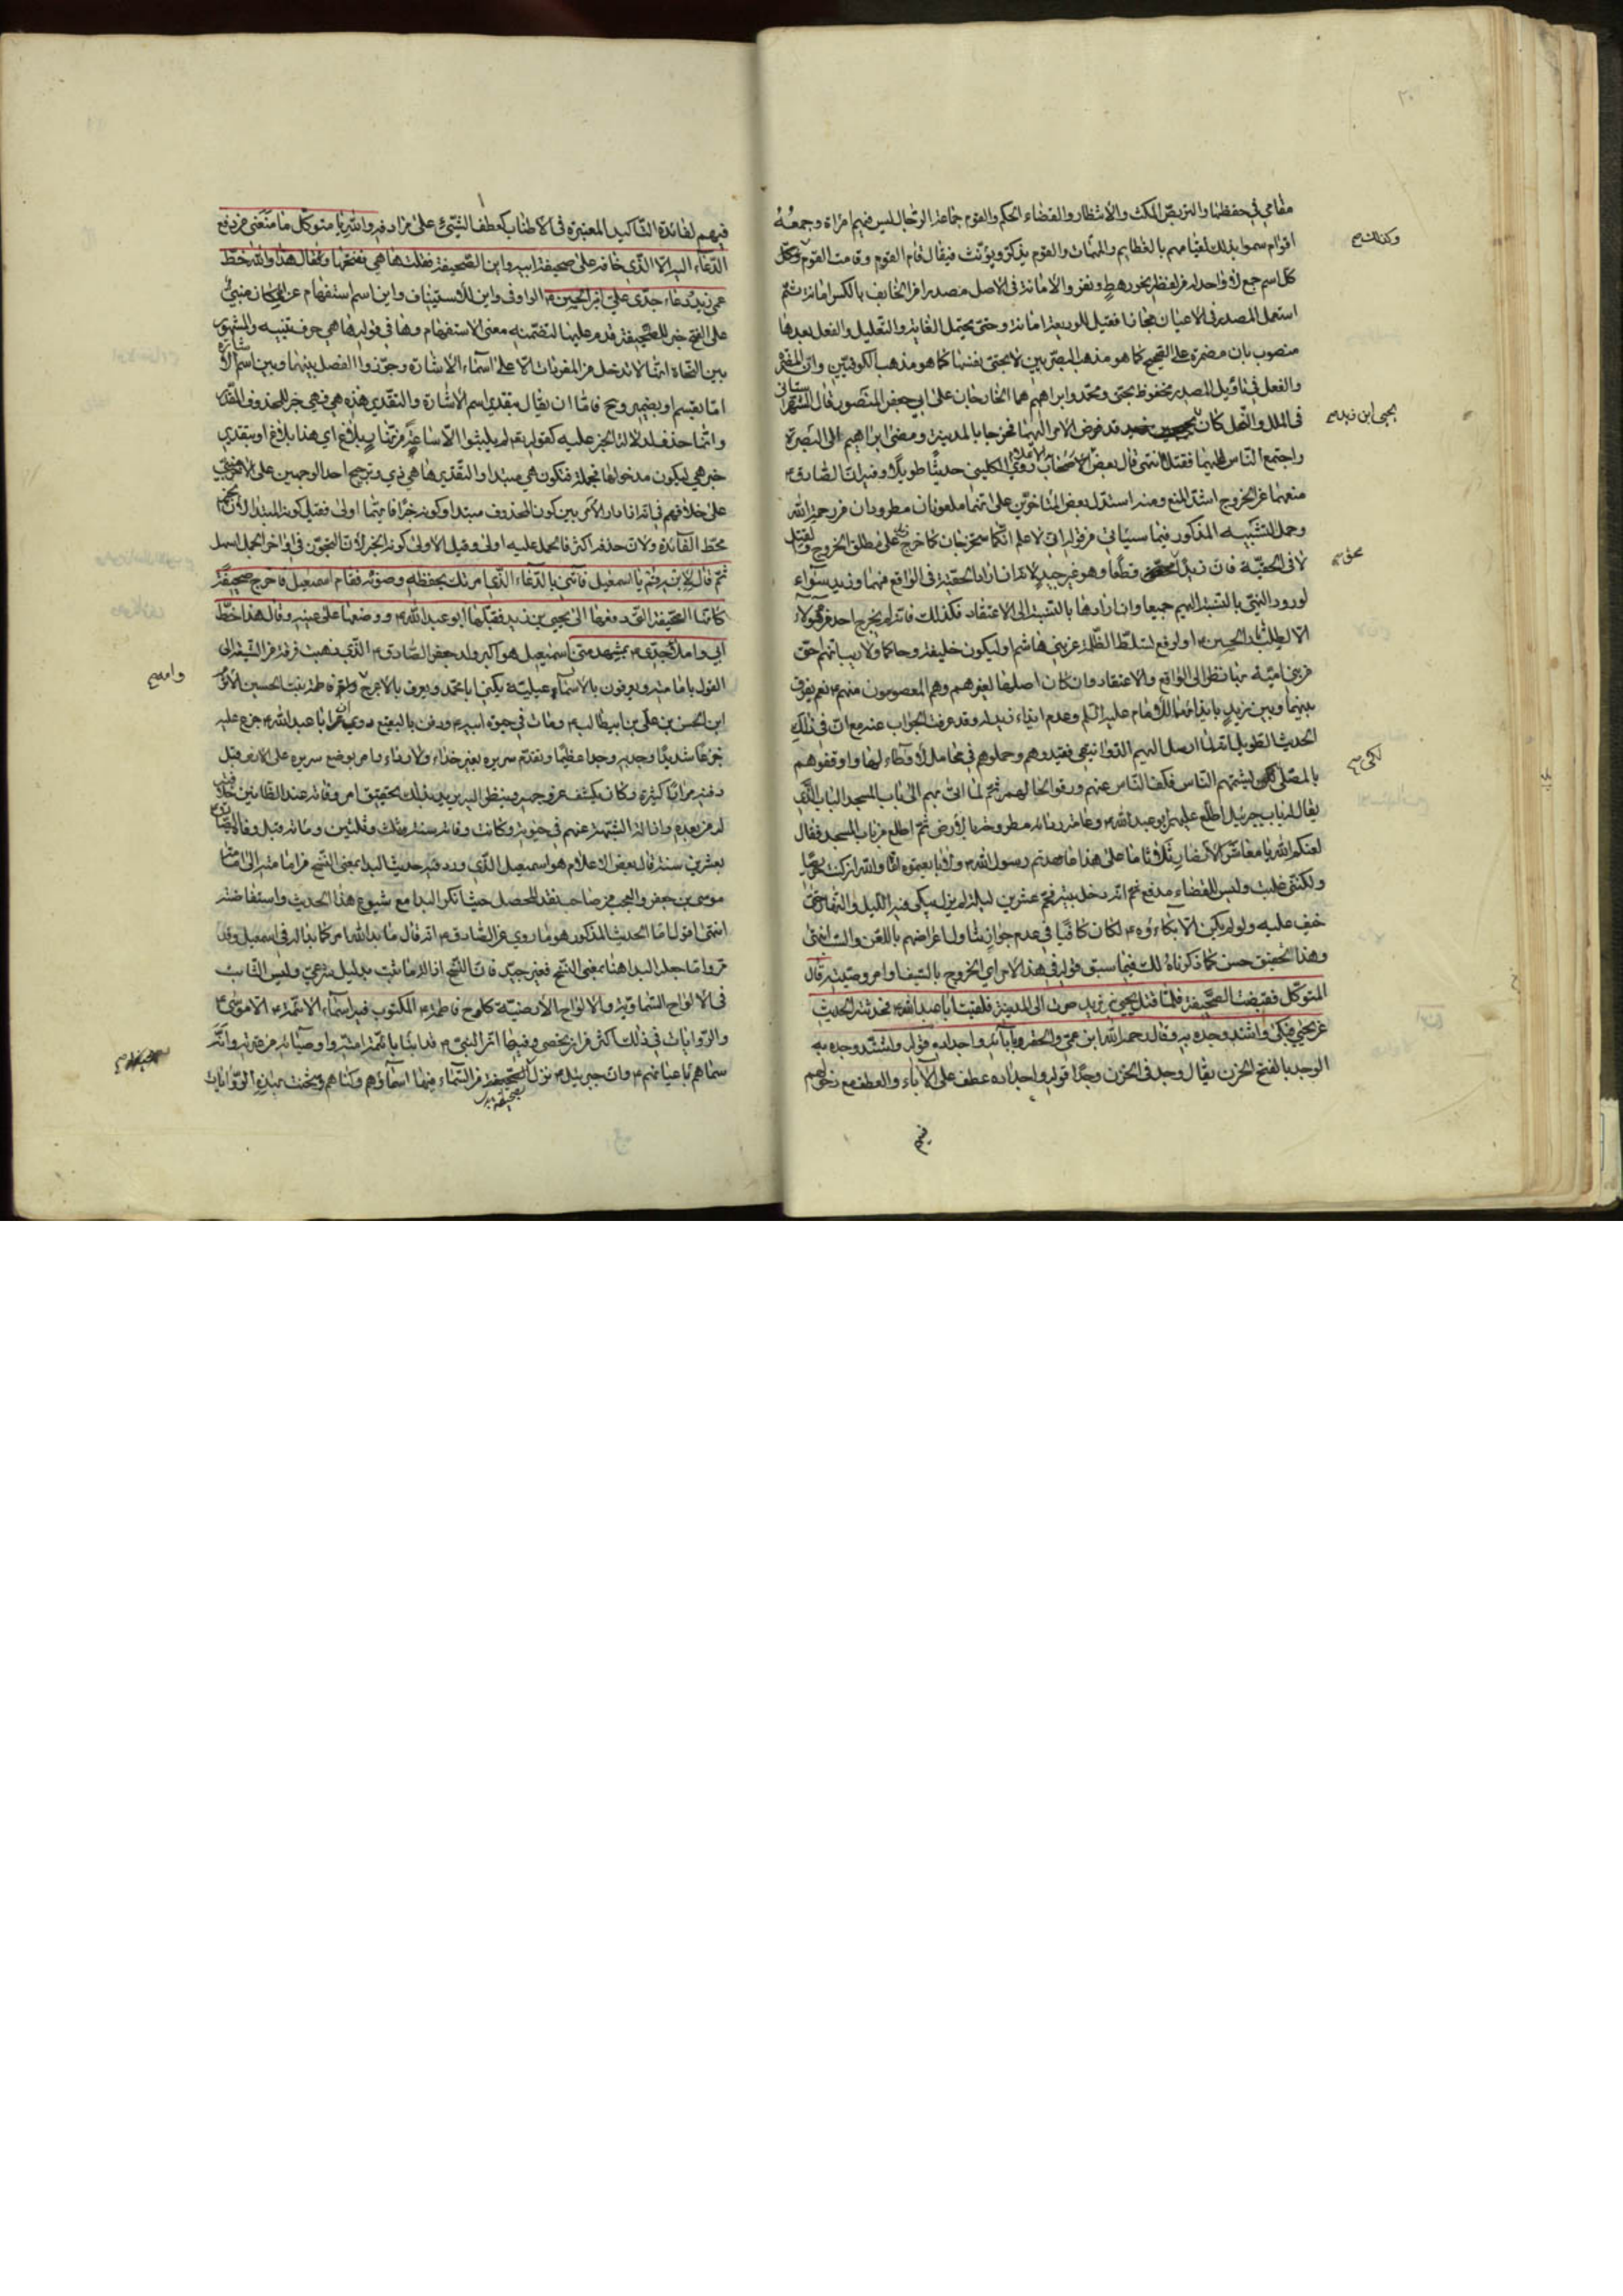 مقامي في حفظها والتربص المكث والانتظار والقضاء الحكم والقوم جماعة الرجال ليس فيهم امراة وجمعه
اقوام سموا بذلك لقيامهم بالعظايم والمهمات والقوم يذكر ويؤنث فيقال قام القوم وقامت القوم وكل
كل اسم جمع لا واحد له من لفظه نحو رهط ونفر والامانة في الاصل مصدر
استعمل المصدر في الاعيان مجازا فقيل للوديعة امانة وحتى يحتمل الغاية والتعليل والفعل بعدها
منصوب بان مضمرة على الصحيح كما هو مذهب البصريين لا بحتى نفسها كما هو مذهب الكوفيين وان المقدرة
والفعل في تاويل المصدر مخفوظ بحتى ومحمد وابراهيم هما الخارجان على ابي جعفر المنصور قال الشهرستاني
في الملل والنحل كان قد فوض الامر اليهما فخرجا بالمدينة ومضى ابراهيم الى البصرة
واجتمع الناس عليهما فقتلا انتهى قال بعض الاصحاب روى الكليني حديثا طويلا وفيه ان الصادق
منعهما عن الخروج اشد المنع ومنه استدل بعض المتاخرين على انهما ملعونان مطرودان من رحمة الله
وحمل التشبيه المذكور فيما سياتي من قوله اني لاعلم انكما ستخرجان كما خرج على مطلق الخروج والقتل
لا في الحقية فان زيدا محق قطعا وهو غير جيد لانه ان اراد الحقية في الواقع فهما وزيد سواء
لورود النهي بالنسبة اليهم جميعا وان اراد بالنسبة الى الاعتقاد فكذلك فانه لم يخرج احد من هؤلاء
الا لطلب ثار الحسين او لرفع تسلط الظلمة عن بني هاشم او ليكون خليفة وحاكما ولا ريب انهم احق
من بني امية بها نظرا الى الواقع والاعتقاد وان كان اصلها لغيرهم وهم المعصومون منهم نعم يفرق
بينهما وبين زيد بايذائهما للامام عليه السلم وعدم ايذاء زيد له وقد عرفت الجواب عنه مع ان في ذلك
الحديث الطويل انه لما ارسل اليهم الدوانيقي فقيدوهم وحملوهم في محامل لا وطاء لها واوقفوهم
بالمصلى لكي يشتمهم الناس فكف الناس عنهم ورقوا لحالهم ثم لما اتى بهم الى باب المسجد الباب الذي
يقال له باب جبرئيل اطلع عليهم ابو عبد الله وعامة ردائه مطروحة بالارض ثم اطلع من باب المسجد فقال
لعنكم الله يا معاشر الانصار ثلاثا ما على هذا عاهدتم رسول الله ولا بايعتموه اما والله ان كنت حريصا
ولكني غلبت وليس للقضاء مدفع ثم انه دخل بيته فحم عشرين ليلة لم يزل يبكي فيه الليل والنهار حتى
خيف عليه ولو لم يكن الا بكاؤه لكان كافيا في عدم جوازنا تناول اعراضهم باللعن والسب انتهى
وهذا تحقيق حسن كما ذكرناه لك فيما سبق قوله في هذا الامر اي الخروج بالسيف او امر وصيته قال
المتوكل فقبضت الصحيفة فلما قتل يحيى بن زيد صرت الى المدينة فلقيت ابا عبد الله فحدثته الحديث
عن يحيى فبكى واشتد وجده به وقال رحم الله ابن عمي والحقه بآبائه واجداده قوله واشتد وجده به
الوجد بالفتح الحزن يقال وجد في الحزن وجدا قوله واجداده عطف على الآباء والعطف مع دخولهم
فيهم
وكذلك
يحيى ابن زيد
محق
لكي
فيهم لفائدة التاكيد المعتبرة في الاطناب كعطف الشيء على مرادفه والله يا متوكل ما منعني من دفع
الدعاء اليه الا الذي خافه على صحيفة ابيه واين الصحيفة فقلت ها هي ففتحها وقال هذا والله خط
عمي زيد ودعاء جدي علي ابن الحسين الواو في واين للاستيناف واين اسم استفهام عن المكان مبني
على الفتح خبر للصحيفة قدم عليها لتضمنه معنى الاستفهام وها في قوله ها هي حرف تنبيه والمشهور
بين النحاة انها لا تدخل من المفردات الا على اسماء الاشارة وجوزوا الفصل بينها وبين اسم الاشارة
اما بقسم او بضمير وح فاما ان يقال بتقدير اسم الاشارة والتقدير هذه هي فهي خبر المحذوف المقدر
وانما حذف لدلالة الخبر عليه كقوله لم يلبثوا الا ساعة من نهار بلاغ اي هذا بلاغ او بتقدير
خبر هي ليكون مدخولها جملة فتكون هي مبتدا والتقدير ها هي ذي وترجيح احد الوجهين على الاخر مبني
على خلافهم في انه اذا دار الامر بين كون المحذوف مبتدا وكونه خبرا فايهما اولى فقيل كونه المبتدا لان الخبر
محط الفائدة ولان حذفه اكثر فالحمل عليه اولى وقيل الاولى كونه الخبر لان التجوز في اواخر الجمل اسهل
ثم قال لابنه قم يا اسمعيل فأتني بالدعاء الذي امرتك بحفظه وصونه فقام اسمعيل فاخرج صحيفة
كانها الصحيفة التي دفعها الى يحيى بن زيد فقبلها ابو عبد الله ووضعها على عينه وقال هذا خط
ابي واملاء جدي بمشهد مني اسمعيل هو اكبر ولد جعفر الصادق الذي ذهبت فرقة من الشيعة الى
القول بامامته ويعرفون بالاسماعيلية يكنى ابا محمد ويعرف بالاعرج وامه فاطمة بنت الحسين الاثرم
ابن الحسن بن علي بن ابيطالب ومات في حيوة ابيه ودفن بالبقيع وروي ان ابا عبد الله جزع عليه
جزعا شديدا ووجد به وجدا عظيما وتقدم سريره بغير حذاء ولا رداء وامر بوضع سريره على الارض قبل
دفنه مرارا كثيرة وكان يكشف عن وجهه وينظر اليه يريد بذلك تحقيق امر وفاته عند الظانين خلافته
له من بعده وازالة الشبهة عنهم في حيوته وكانت وفاته سنة ثلث وثلثين ومائة قبل وفاة الصادق
بعشرين سنة قال بعض الاعلام هو اسمعيل الذي ورد فيه حديث البدا بمعنى النسخ من امامته الى امامة
موسى بن جعفر والعجب من صاحب نقد المحصل حيث انكر البدا مع شيوع هذا الحديث واستفاضته
انتهى اقول اما الحديث المذكور هو ما روي عن الصادق انه قال ما بدا لله امر كما بدا له في اسمعيل
واما جعله البدا هنا بمعنى النسخ فغير جيد فان النسخ ازالة ما ثبت بدليل شرعي وليس الثابت
في الالواح السماوية والالواح الارضية كلوح فاطمة المكتوب فيه اسماء الائمة الا موسى
والروايات في ذلك اكثر من ان تحصى وفيها ان النبي قد انبأ بائمة امته واوصيائه من عترته وانه
سماهم باعيانهم وان جبريل نزل بصحيفة من السماء فيها اسماؤهم وكناهم وشحنت بهذه الروايات
وامه